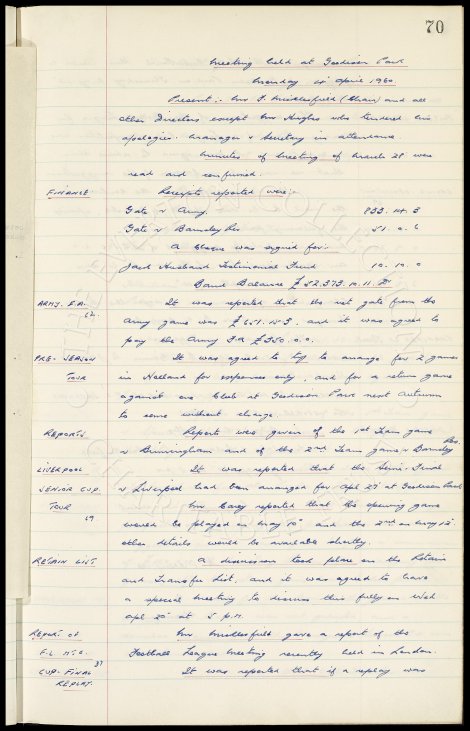 70
Meeting held at Goodison Park
Monday 4th April 1960.
Present :- Mr F. Micklesfield (Chair) and all
other Directors except Mr Hughes who tendered his
apologies. Manager & Secretary in attendance
Minutes of Meeting of March 28 were
read and confirmed.
FINANCE Receipts reported were:-
Gate v Army. 833. 14. 5
Gate v Barnsley Res 51. 0. 6
A cheque was signed for:-
Jack Husband Testimonial Fund 10. 10. 0
Bank Balance £52,373. 10. 11.
ARMY. F.A. It was reported that the net gate from the
62 Army game was £651. 15. 3. and it was agreed to
pay the Army FA £350. 0. 0.
PRE-SEASON It was agreed to try to arrange for 2 games
TOUR in Holland for expenses only, and for a return game
against one Club at Goodison Park next Autumn
to same without charge.
REPORTS Reports were given of the 1st Team game
v Birmingham and of the 2nd Team game v Barnsley Res.
LIVERPOOL It was reported that the Semi-Final
SENIOR CUP v Liverpool had been arranged for Apl 27th at Goodison Park
TOUR Mr Carey reported that the opening game
69 would be played on May 10th and the 2nd on May 12th
other details would be available shortly.
RETAIN LIST A discussion took place on the Retain
and Transfer List, and it was agreed to have
a special meeting to discuss this fully on Wed
Apl 20th at 5 P.M.
REPORT of Mr Micklesfield gave a report of the
F.L. MTG. Football League meeting recently held in London.
CUP-FINAL 37 It was reported that if a replay was
REPLAY.